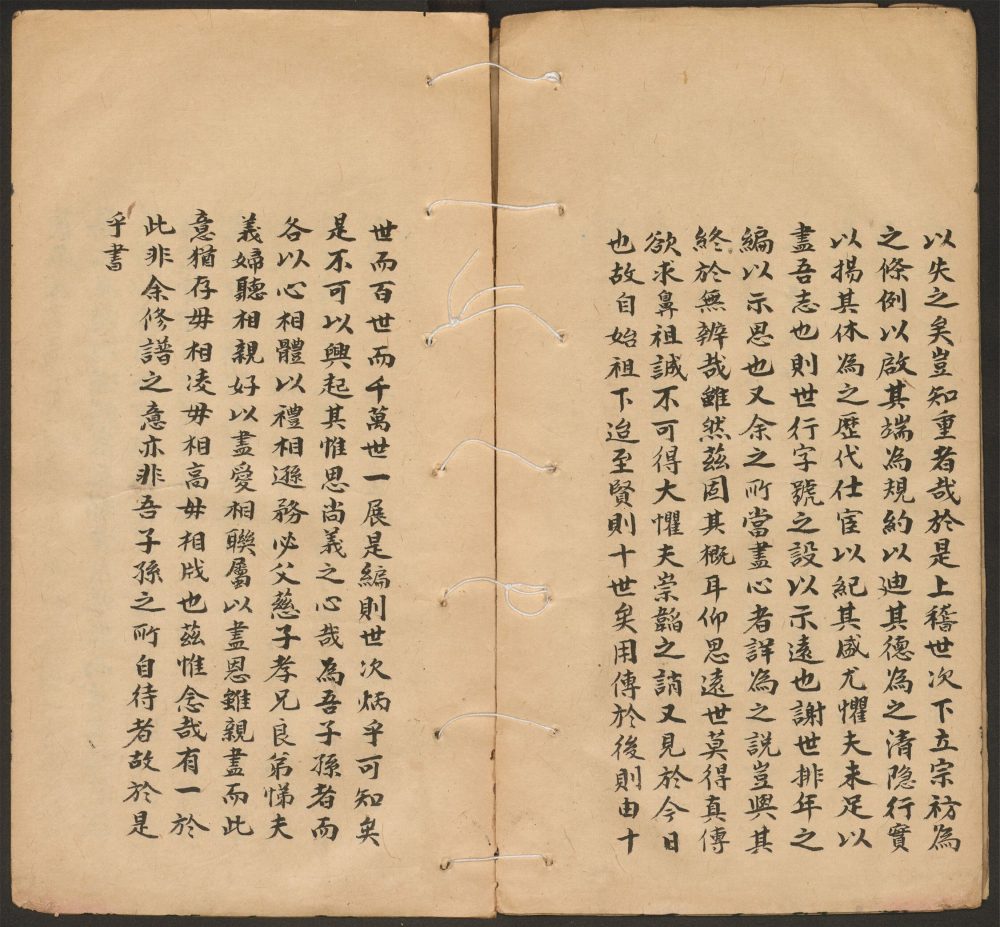 以失之矣豈知重者哉於是上稽世次下立宗祊為
之條例以啟其端為規約以迪其德為之清隐行實
以揚其休為之歷代仕宦以紀其盛尤懼夫未足以
盡吾志也則世行字號之設以示遠也謝世排年之
編以示思也又余之所當盡心者詳為之説豈與其
終於無辨哉雖然茲固其概耳仰思遠世莫得真傳
欲求鼻祖誠不可得大懼夫崇韜之誚又見於今日
也故自始祖下迨至賢則十世矣用傳於後則由十
世而百世而千萬世一展是編則世次炳乎可知矣
是不可以興起其惟思尚義之心哉為吾子孫者而
各以心相體以禮相遜務必父慈子孝兄良弟悌夫
義婦聽相親好以盡愛相聯屬以盡恩雖親盡而此
意猶存毋相凌毋相高毋相戕也茲惟念哉有一於
此非余修譜之意亦非吾子孫之所自待者故於是
乎書